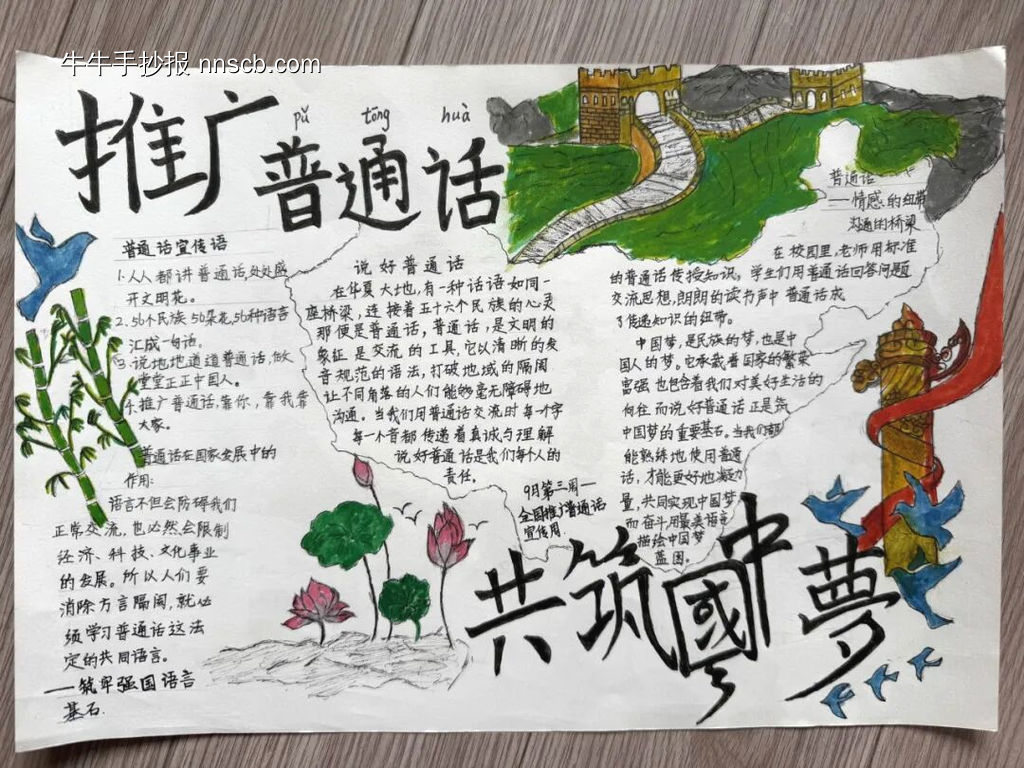 牛牛手抄报 nnscb.com
推广
pǔ tōng huà
普通话
普通话宣传语
1.人人都讲普通话,处处盛
开文明花。
2.56个民族56朵花,56种语言
汇成一句话。
3.说地地道道普通话,做
堂堂正正中国人。
4.推广普通话,靠你,靠我靠
大家。
普通话在国家发展中的
作用:
语言不但会防碍我们
正常交流,也必然会限制
经济、科技、文化事业
的发展。所以人们要
消除方言隔阂,就必
须学习普通话这法
定的共同语言。
——筑牢强国语言
基石.
说好普通话
在华夏大地,有一种话语如同一
座桥梁,连接着五十六个民族的心灵
那便是普通话,普通话,是文明的
象征是交流的工具,它以清晰的发
音规范的语法,打破地域的隔阂
让不同角落的人们能够毫无障碍地
沟通。当我们用普通话交流时每一个字
每一个音都传递着真诚与理解
说好普通话是我们每个人的
责任.
9月第三周一
全国推广普通话
宣传周.
普通话
——情感的纽带
沟通的桥梁
在校园里,老师用标准
的普通话传授知识,学生们用普通话回答问题
交流思想,朗朗的读书声中普通话成
了传递知识的纽带。
中国梦,是民族的梦,也是中
国人的梦。它承载着国家的繁荣
富强也包含着我们对美好生活的
向往.而说好普通话正是筑
中国梦的重要基石。当我们都
能熟练地使用普通
话,才能更好地凝聚力
量,共同实现中国梦
而奋斗用最美语言
描绘中国梦
蓝图.
共筑中國夢